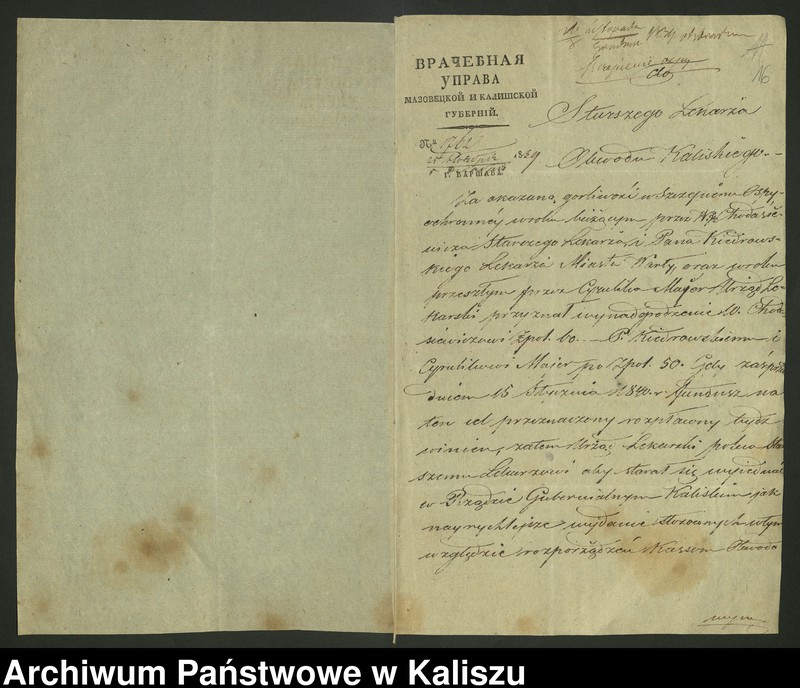 ВРАЧЕБНАЯ
УПРАВА
МАЗОВЕЦКОЙ И КАЛИШСКОЙ
ГУБЕРНІЙ.
№ 1762
1839
Г. ВАРШАВА
16
Starszego Lekarza
Obwodu Kaliskiego.
Za okazaną gorliwość w Szczepieniu Ospy
ochronnéy w roku bieżącym przez
Starszego Lekarza, i Pana Kiedrows-
kiego Lekarza Miasta Warty, oraz w roku
przeszłym przez Cyrulika Majer Urząd Le-
karski przyznał wynadgrodzenie W. Chod-
siewiczowi Złpol. 60. P. Kiedrowskiemu i
Cyrulikowi Majer po Złpol. 50. Gdy zaś przed
dniem 15 Stycznia 1840 r. fundusz na
ten cel przeznaczony rozpłacony bydź
winien, zatem Urząd Lekarski poleca Star-
szemu Lekarzowi aby starał się wyjednać
w Rządzie Gubernialnym Kaliskim jak
nayrychlejsze wydanie stosownych w tym
względzie rozporządzeń Kassom Obwodo
Archiwum Państwowe w Kaliszu